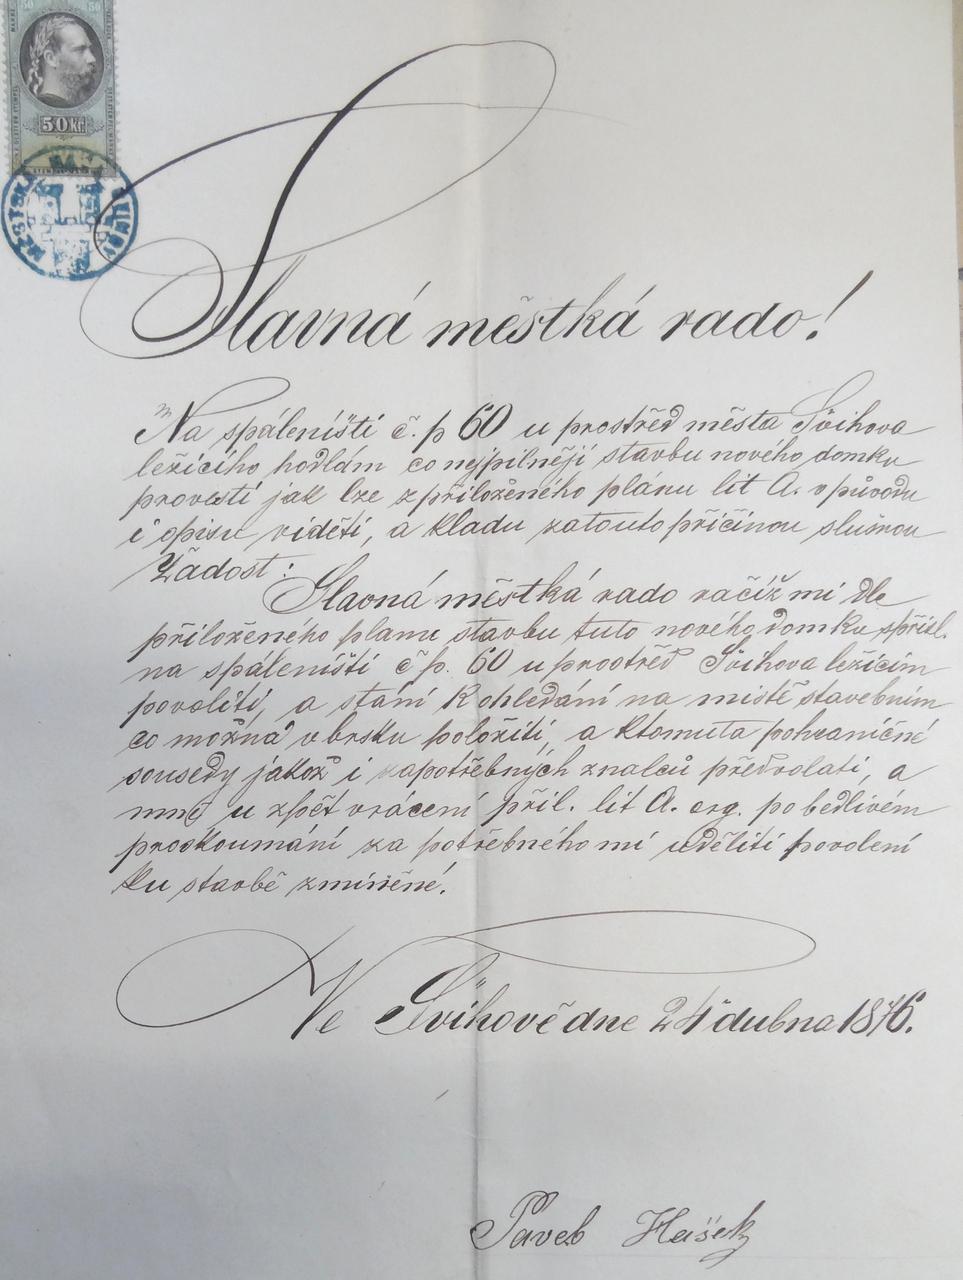 50 Kr.
Slavná městká rado!
Na spáleništi č. p 60 u prostřed města Švihova
ležícího hodlám co nejpilněji stavbu nového domku
provesti jak lze z přiloženého plánu lit A. v původu
i opisu viděti, a kladu za touto příčinou slušnou
Žádost:
Slavná městká rado račiž mi dle
přiloženého planu stavbu tuto nového domku s přísl.
na spáleništi č p. 60 u prostřed Švihova ležícím
povoliti, a stání k ohledání na mistě stavebním
co možná v brsku položiti, a ktomuta pohraničné
sousedy jakož i zapotřebných znalců předvolati, a
mně u zpět vrácení příl. lit A. erg. po bedlivém
proskoumání za potřebného mi uděliti povolení
ku starbě zmíněné.
Ve Švihově dne 24 dubna 1876.
Pavel Hašek